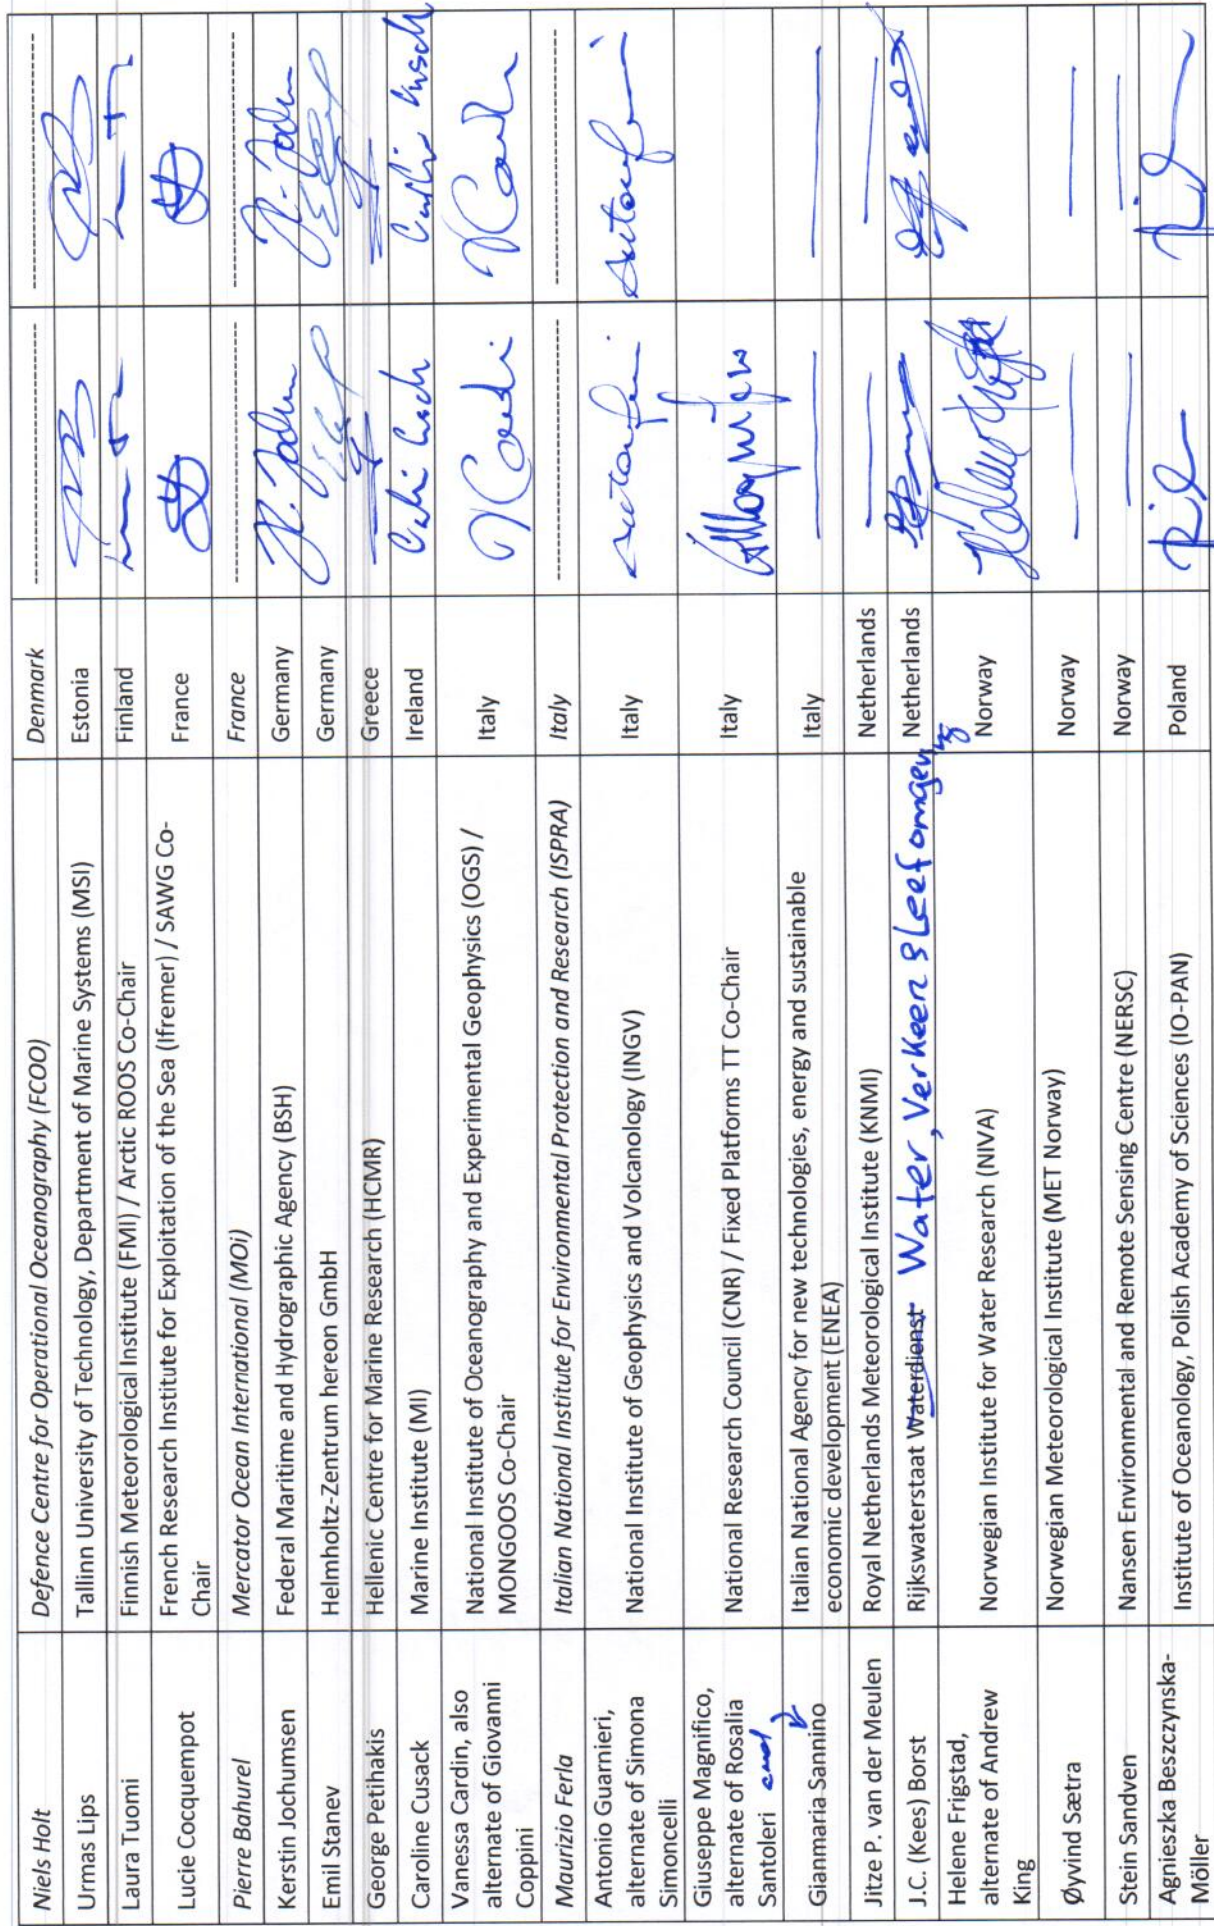 Niels Holt Defence Centre for Operational Oceanography (FCOO) Denmark ---------- ----------
Urmas Lips Tallinn University of Technology, Department of Marine Systems (MSI) Estonia
Laura Tuomi Finnish Meteorological Institute (FMI) / Arctic ROOS Co-Chair Finland
Lucie Cocquempot French Research Institute for Exploitation of the Sea (Ifremer) / SAWG Co- France
Chair
Pierre Bahurel Mercator Ocean International (MOi) France ---------- ----------
Kerstin Jochumsen Federal Maritime and Hydrographic Agency (BSH) Germany
Emil Stanev Helmholtz-Zentrum hereon GmbH Germany
George Petihakis Hellenic Centre for Marine Research (HCMR) Greece
Caroline Cusack Marine Institute (MI) Ireland
Vanessa Cardin, also National Institute of Oceanography and Experimental Geophysics (OGS) / Italy
alternate of Giovanni MONGOOS Co-Chair
Coppini
Maurizio Ferla Italian National Institute for Environmental Protection and Research (ISPRA) Italy ---------- ----------
Antonio Guarnieri, National Institute of Geophysics and Volcanology (INGV) Italy
alternate of Simona
Simoncelli
Giuseppe Magnifico, National Research Council (CNR) / Fixed Platforms TT Co-Chair Italy
alternate of Rosalia
Santoleri and
Gianmaria Sannino Italian National Agency for new technologies, energy and sustainable Italy
economic development (ENEA)
Jitze P. van der Meulen Royal Netherlands Meteorological Institute (KNMI) Netherlands
J.C. (Kees) Borst Rijkswaterstaat Waterdienst Water, Verkeer & Leefomgeving Netherlands
Helene Frigstad, Norwegian Institute for Water Research (NIVA) Norway
alternate of Andrew
King
Øyvind Sætra Norwegian Meteorological Institute (MET Norway) Norway
Stein Sandven Nansen Environmental and Remote Sensing Centre (NERSC) Norway
Agnieszka Beszczynska- Institute of Oceanology, Polish Academy of Sciences (IO-PAN) Poland
Möller